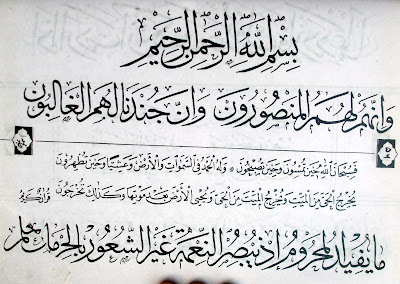 بِسْمِ اللهِ الرَّحْمٰنِ الرَّحِيْمِ
وَاِنَّهُمْ لَهُمُ الْمَنْصُورُونَ وَاِنَّ جُنْدَنَا لَهُمُ الْغَالِبُونَ
فَسُبْحَانَ اللهِ حِيْنَ تُمْسُونَ وَحِيْنَ تُصْبِحُونَ * وَلَهُ الْحَمْدُ فِي السَّمٰوَاتِ وَالْأَرْضِ وَعَشِيًّا وَحِيْنَ تُظْهِرُونَ
يُخْرِجُ الْحَيَّ مِنَ الْمَيِّتِ وَيُخْرِجُ الْمَيِّتَ مِنَ الْحَيِّ وَيُحْيِي الْأَرْضَ بَعْدَ مَوْتِهَا وَكَذٰلِكَ تُخْرَجُونَ
مَا يُفِيْدُ الْمَحْرُومَ اِذْ يُبْصِرُ النِّعْمَةَ غَيْرَ الشُّعُورِ بِالْحِرْمَانِ